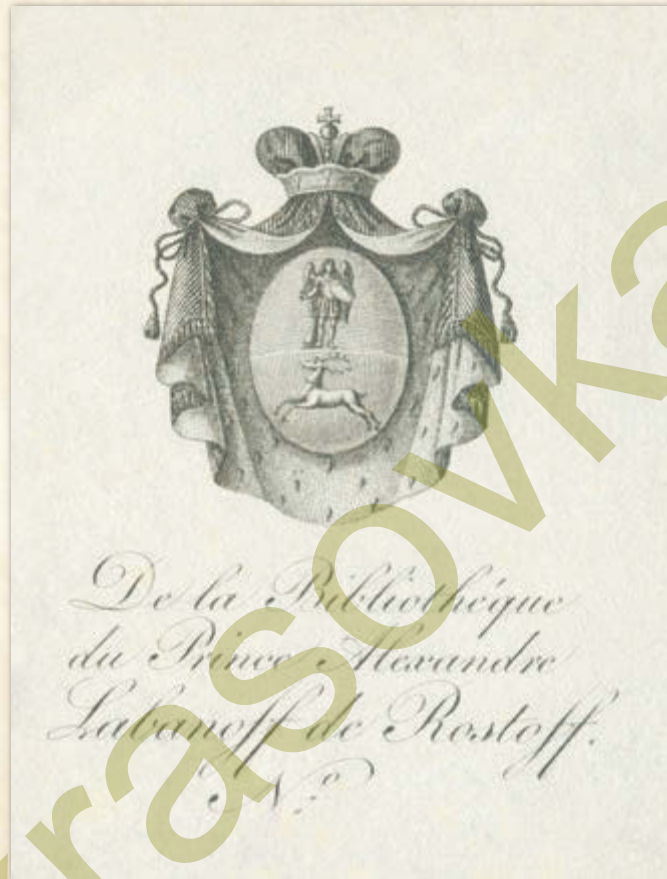 De la Bibliothéque
du Prince Alexandre
Labanoff de Rostoff.
Nº
rasovka